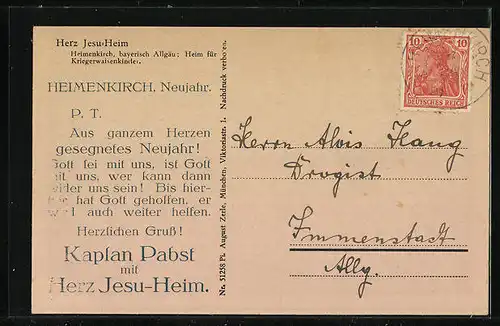 Herz Jesu-Heim
Heimenkirch, bayerisch Allgäu: Heim für
Kriegerwaisenkinder.
HEIMENKIRCH, Neujahr.
P. T.
Aus ganzem Herzen
gesegnetes Neujahr!
Gott sei mit uns, ist Gott
mit uns, wer kann dann
wider uns sein! Bis hier-
her hat Gott geholfen, er
wird auch weiter helfen.
Herzlichen Gruß!
Kaplan Pabst
mit
Herz Jesu-Heim.
No. 51258 Pt. August Zerle, München, Viktoriastr. 1. Nachdruck verboten.
10 10
DEUTSCHES REICH
RCH
Herrn Alois Haug
Drogist
Immenstadt
Allg.